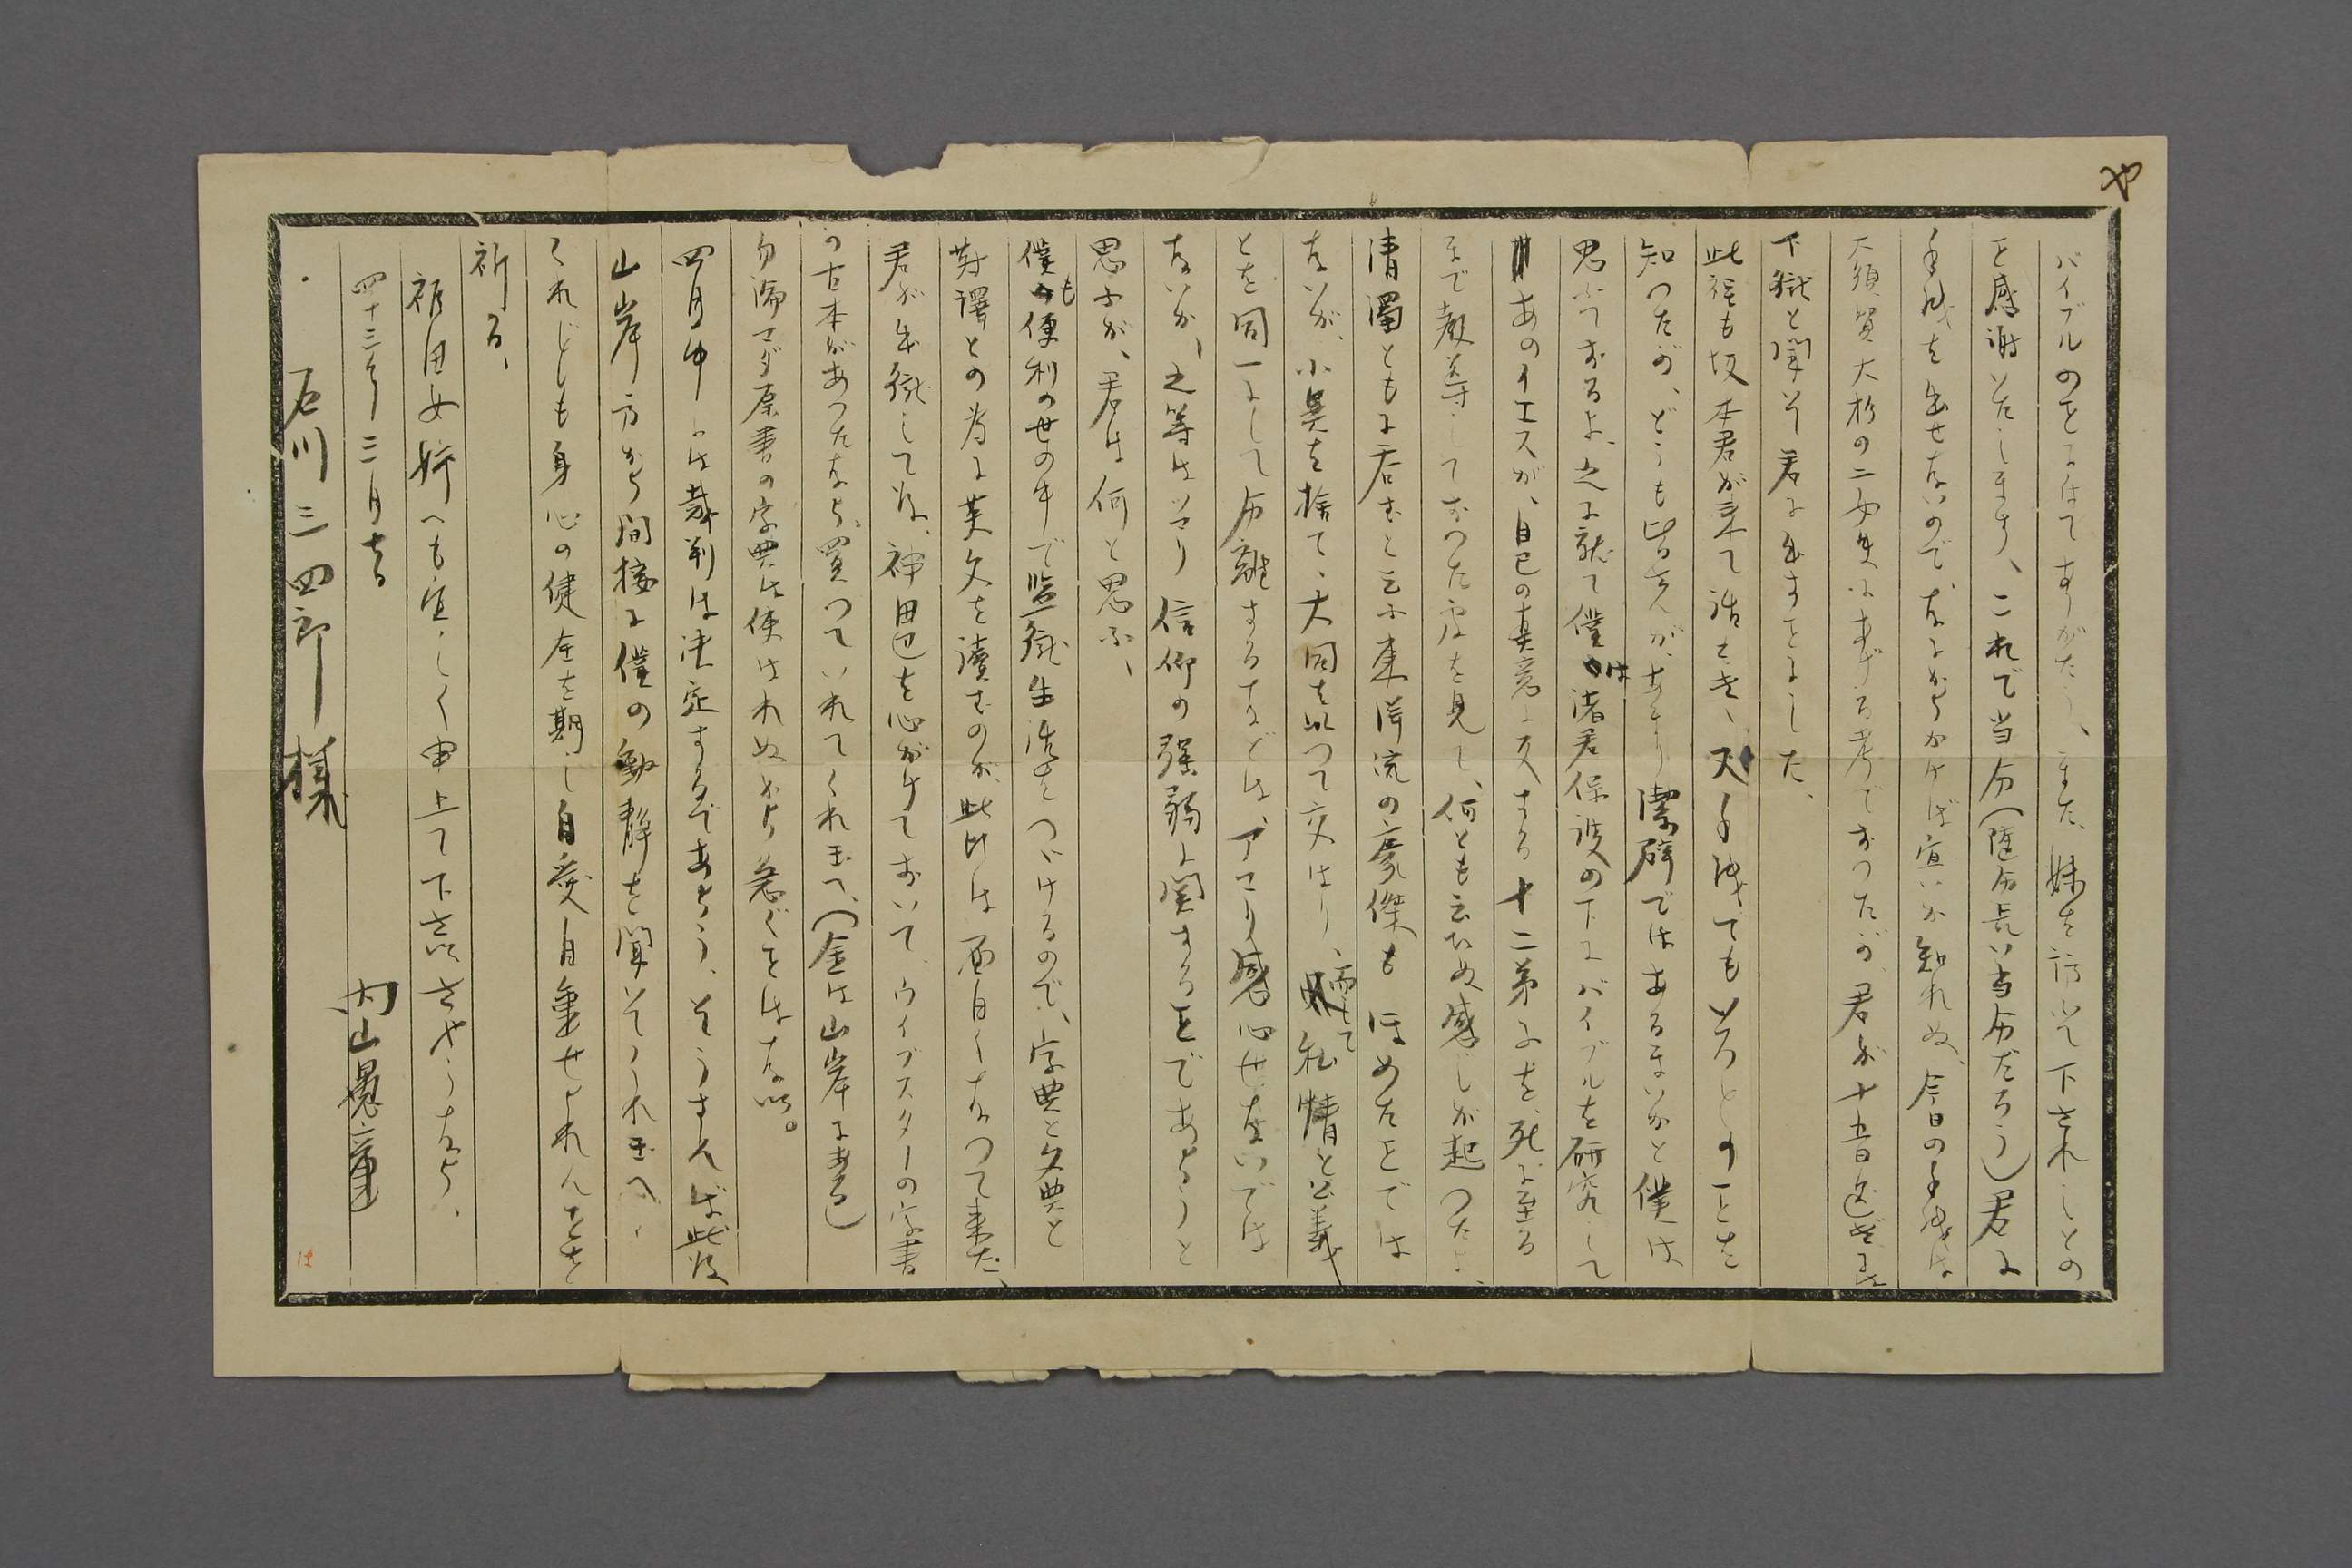 や
バイブルのことはてありがたう、また、妹を訪ひて下されしとの
を感謝いたします、これで当分(随分長い当分だろう)君に
手紙を出せないのでなるからかけば宜いか知れぬ、今日の手紙は
大須賀大杉の二女史にまげる考でおつたが、君が廿五日迄ぞには
下獄と聞いて君に出すことにした、
此程も坂本君が来て話をき、手紙でもやろとのことを
知つたが、どうも皆さんが、あまり潔癖ではあるまいかと僕は
思ふておるよ、之に就て僕は諸君保護の下にバイブルを研究して
あのイエスが、自己の真意に反する十二弟子を、死に至る
まで教導しておつた処を見て、何とも云われぬ感じが起つたよ、
清濁ともに呑むと云ふ東洋流の豪傑もほめたことでは
ないが、小異を捨て、大同を以つて交はり、而して私情と公義
とを同一にして分離するなどは、アマリ感心せないでは
ないか、之等はツマリ信仰の強弱に関することであらうと
思ふが、君は何と思ふ、
僕も便利の世の中で監獄生活をつゞけるので、字典と文典と
対訳との為に英文を読むのが、此比は面白くなつて来た、
君が出獄して後、神田辺を心がけておいて、ウイブスターの字書
の古本があつたなら、買つていれてくれ玉へ、(金は山岸にある)
勿論マダ原書の字典は使はれぬから急ぐことはない。
四月中には裁判は決定するであらう、そうすれば此後
山岸方から間接に僕の動静を聞いてくれ玉へ、
くれ〴〵も身心の健全を期し自愛自重せられんことを
祈る、
福田女姉へも宜しく申上て下さいさやうなら、
四十三年三月七日
内山愚童
石川三四郎様